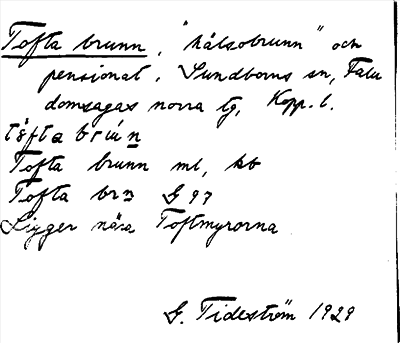 Tofta brunn, "hälsobrunn" och
pensionat. Sundborns sn, Falu
domsagas norra tg, Kopp. l.
tòfta brún
Tofta brunn ml, kb
Tofta brn G 97
Ligger nära Toftmyrorna
G. Tideström 1929